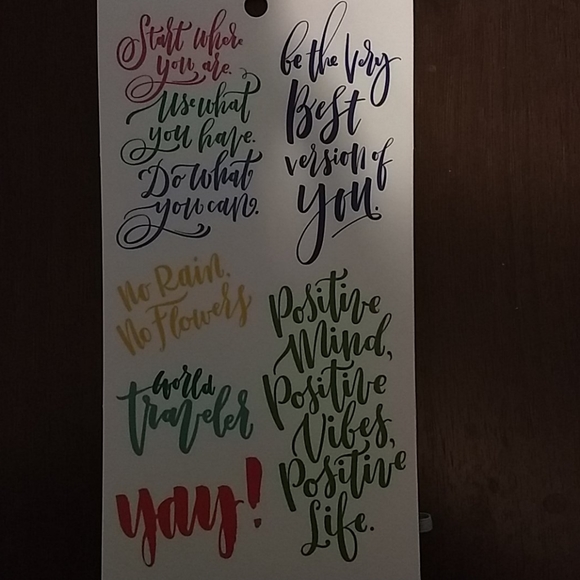 Start where
you are.
Use what
you have.
Do what
you can.
be the very
Best
version of
you.
No Rain.
No Flowers
world
traveler
yay!
Positive
Mind,
Positive
Vibes,
Positive
Life.